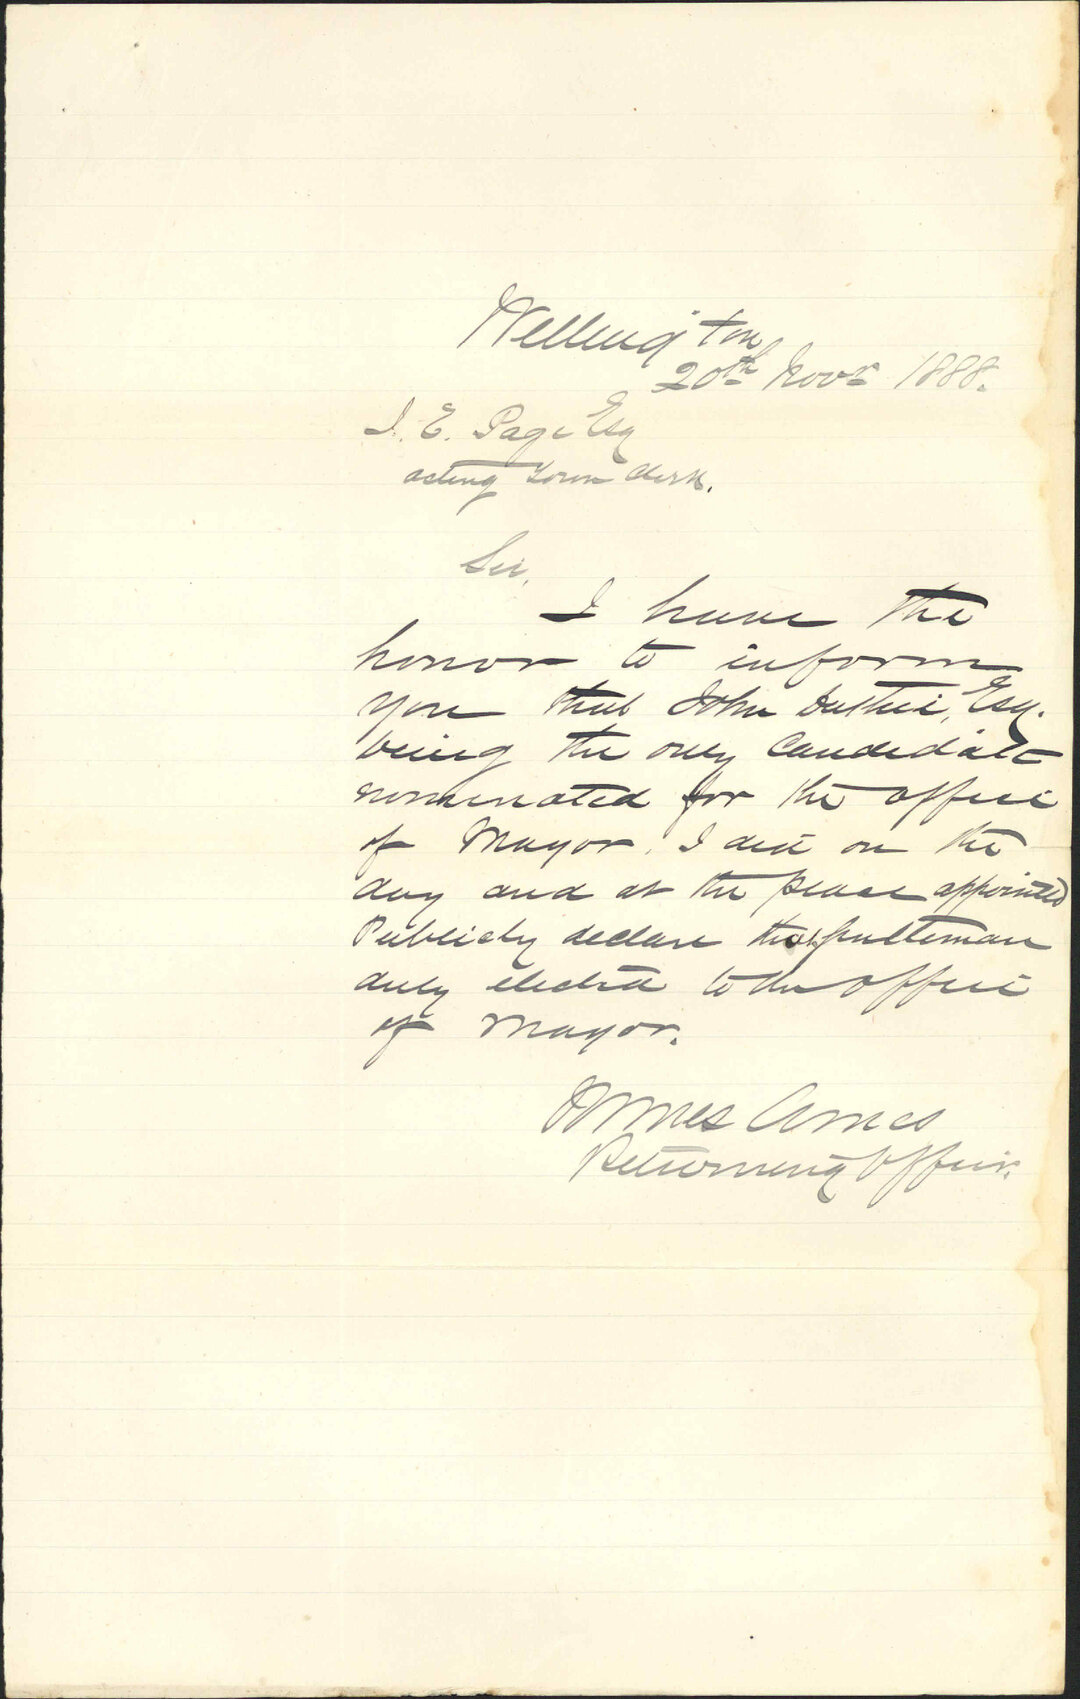 Wellington
20th Novr 1888.
J. E. Page Esq
acting Town Clerk.
Sir,
I have the
honor to inform
you that John Duthie, Esq.
being the only Candidate
nominated for the office
of Mayor, I did on the
day and at the place appointed
Publicly declare that gentleman
duly elected to the office
of Mayor.
James Ames
Returning Officer.